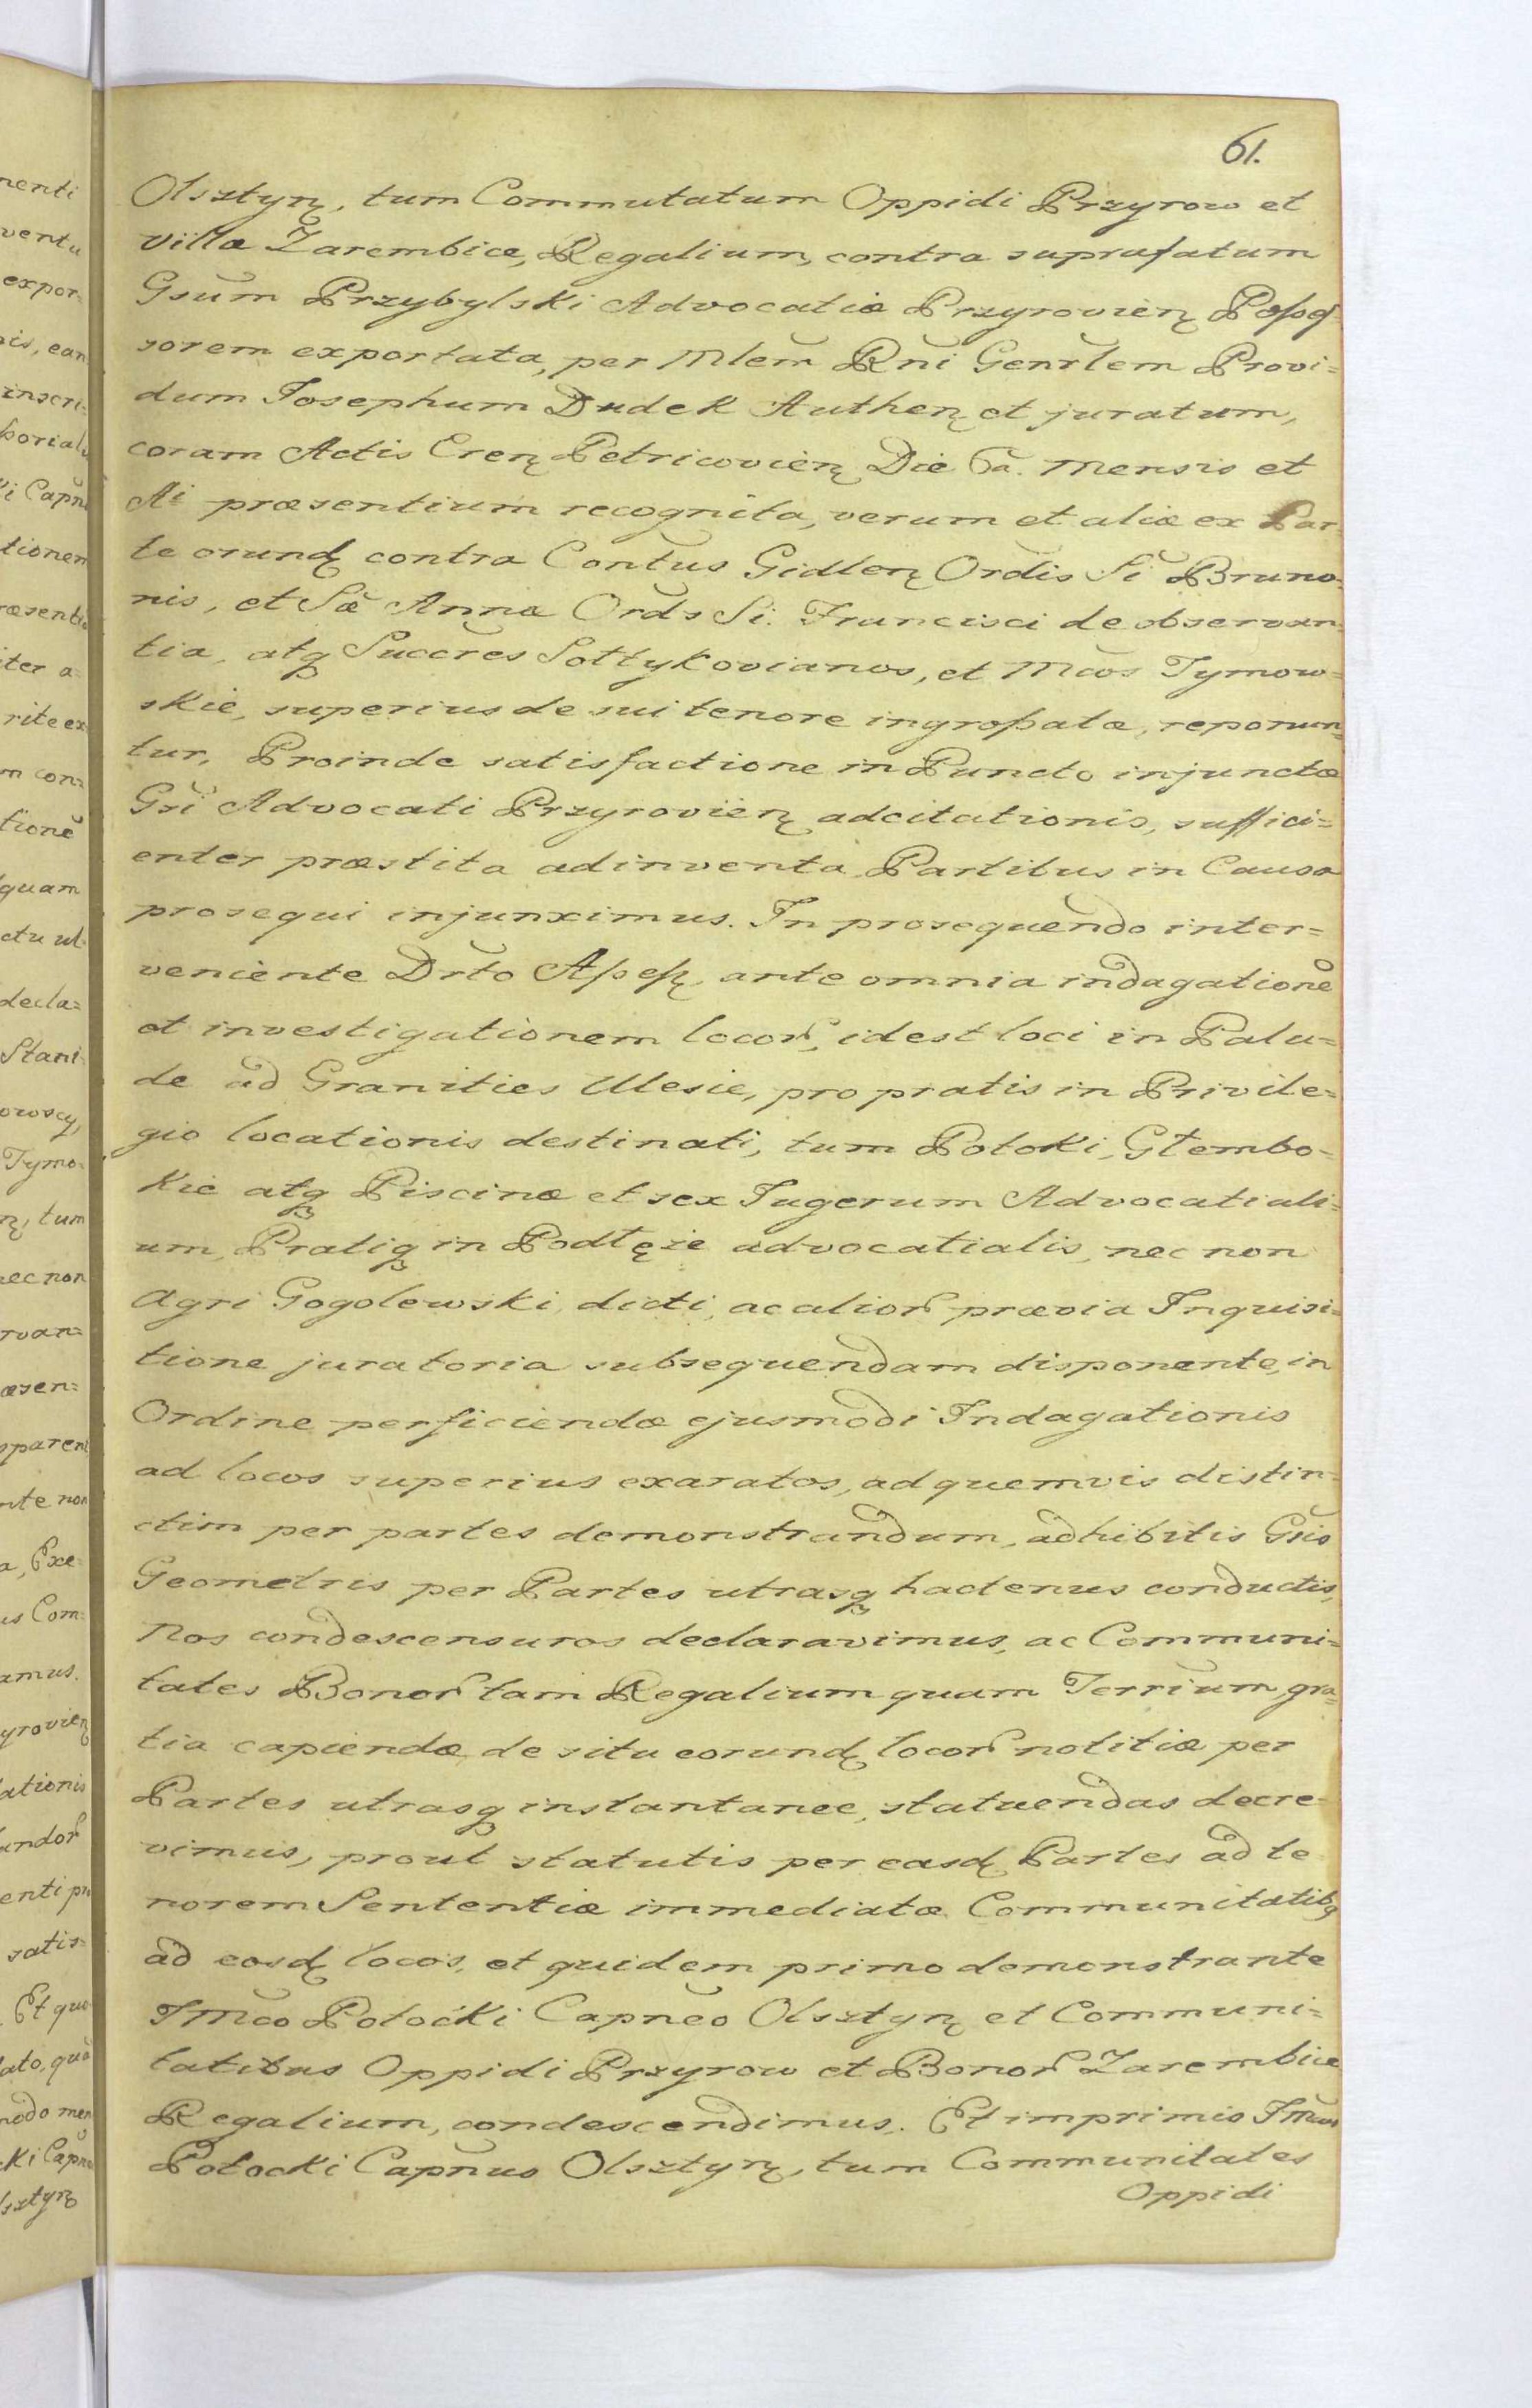 61.
Olsztyn, tum Commutatum Oppidi Przyrow et
villæ Zarembice, Regalium, contra suprafatum
Gsum Przybylski Advocatiæ Przyrovien Posses=
sorem exportata, per Mlem Rni Genrlem Provi=
dum Josephum Dudek Authen et juratum,
coram Actis Cren Petricovien Die 6a. Mensis et
Ai præsentium recognita, verum et aliæ ex Par=
te orund contra Contus Gidlen Ordis Si Bruno=
nis, et Sæ Annæ Ords Si. Francisci de observan=
tia, atq Succres Sołtykovianos, et Mcos Tymow=
skie, superius de sui tenore ingrossatæ, reponun=
tur, Proinde satisfactione in Puncto injunctæ
Gsi Advocati Przyrovien adcitationis, suffici=
enter præstita adinventa, Partibus in Causa
prosequi injunximus. In prosequendo inter=
veniente Drto Assess, ante omnia indagatione
et investigationem locor, idest loci in Palu=
de ad Granities Ulesie, pro pratis in Privile=
gio locationis destinati, tum Potoki, Głembo=
kie atq Piscinæ et sex Jugerum Advocatiali=
um, Pratiq in Podłęże advocatialis, nec non
Agri Gogolewski dicti, ac alior prævia Inquisi=
tione juratoria subsequendam disponente, in
Ordine perficiendæ ejusmodi Indagationis
ad locos superius exaratos, ad quemvis distin=
ctim per partes demonstrandum, adhibitis Gsis
Geometris per Partes utrasq hactenus conductis,
Nos condescensuros declaravimus, ac Communi=
tates Bonor tam Regalium quam Terrium, gra=
tia capiendæ de situ eorund locor notitiæ per
Partes utrasq instantanee, statuendas decre=
vimus, prout statutis per easd Partes ad te
norem Sententiæ immediatæ Communitatibq
ad eosd locos, et quidem primo demonstrante
JMco Potocki Capneo Olsztyn et Communi=
tatibus Oppidi Przyrow et Bonor Zarembice
Regalium, condescendimus. Et imprimis JMcus
Potocki Capnus Olsztyn, tum Communitates
Oppidi